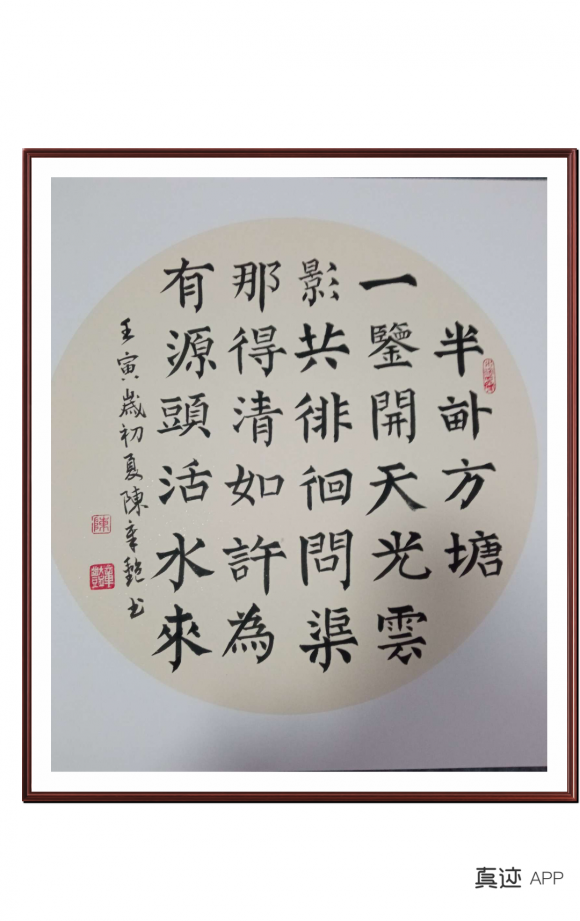 半畝方塘
一鑒開天光雲
影共徘徊問渠
那得清如許為
有源頭活水來
壬寅歲初夏陳章艷书
陳
真迹 APP